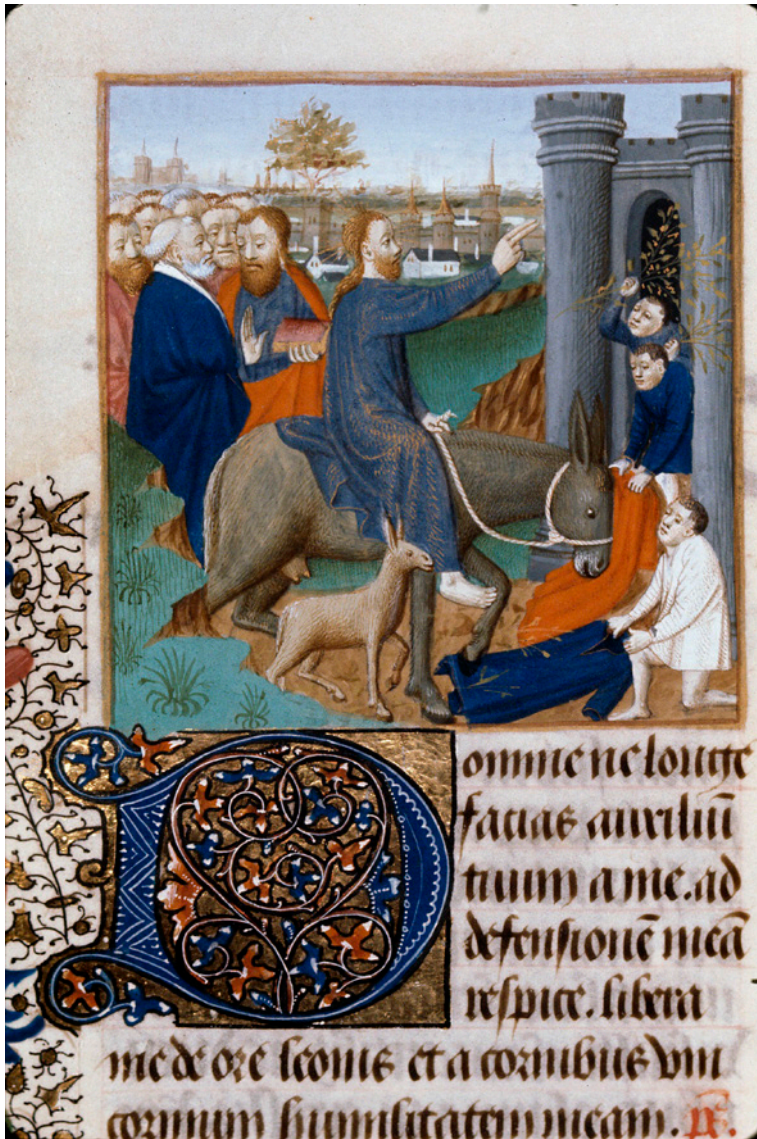 Domine ne longe
facias auxiliū
tuum a me. ad
defensionē meā
respice. libera
me de ore leonis et a cornibus vni
cornium humilitatem meam.